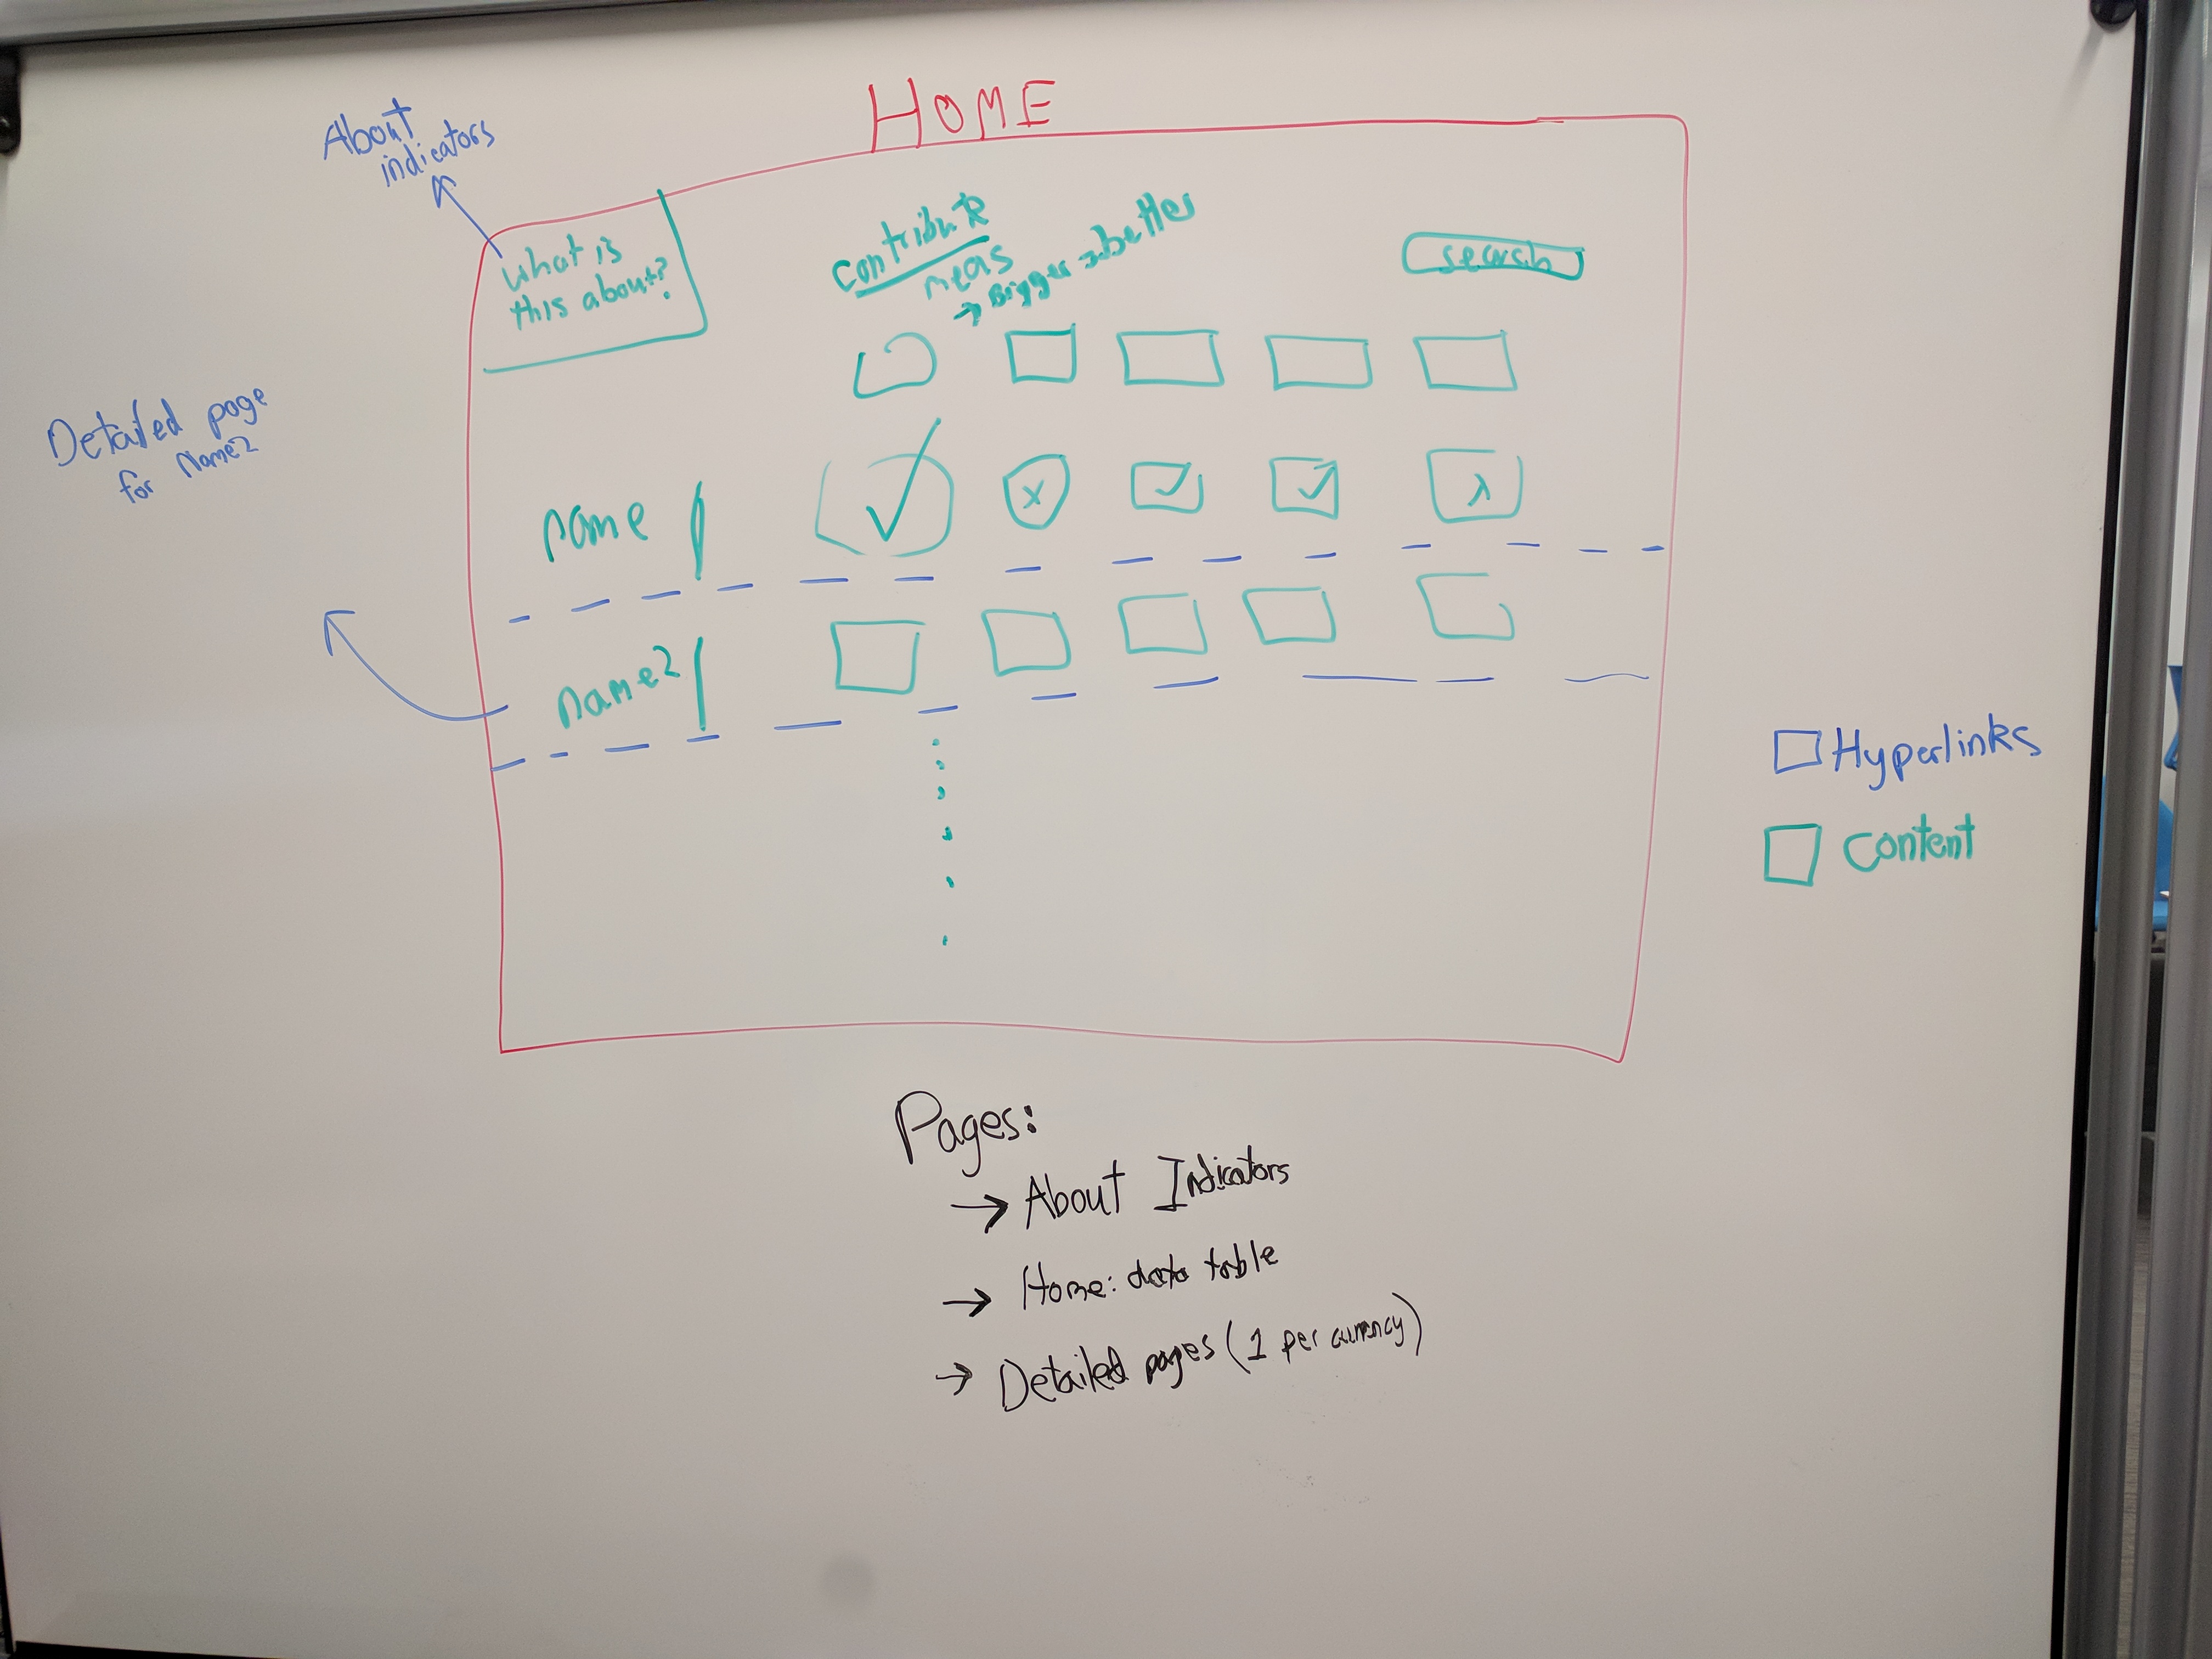 HOME
About
indicators
What is
this about?
contribute
meas
→ Bigger → better
search
Detailed page
for Name2
name
name2
Hyperlinks
content
Pages:
→ About Indicators
→ Home: data table
→ Detailed pages (1 per currency)